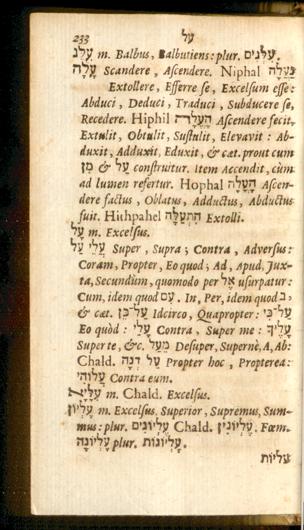 233 על
עלג m. Balbus, Balbutiens: plur. עלגים.
עלה Scandere, Ascendere. Niphal נעלה
Extollere, Efferre se, Excelsum esse:
Abduci, Deduci, Traduci, Subducere se,
Recedere. Hiphil העלה Ascendere fecit,
Extulit, Obtulit, Sustulit, Elevavit: Ab-
duxit, Adduxit, Eduxit, & cæt. prout cum
מן & על construitur. Item Accendit, cùm
ad lumen refertur. Hophal העלה Ascen-
dere factus, Oblatus, Adductus, Abductus
fuit. Hithpahel התעלה Extolli.
על m. Excelsus.
על עלי Super, Supra; Contra, Adversus:
Coram, Propter, Eo quod; Ad, Apud, Jux-
ta, Secundum, quomodo per אל usurpatur:
Cum, idem quod עם. In, Per, idem quod ב,
& cæt. על־כן Idcirco, Quapropter: על־כי
Eo quòd: עלי Contra, Super me: עליך
Super te, &c. מעל Desuper, Supernè, A, Ab:
Chald. על דנה Propter hoc, Propterea:
עלוהי Contra eum.
עליא m. Chald. Excelsus.
עליון m. Excelsus, Superior, Supremus, Sum-
mus: plur. עליונים Chald. עליונין. Fœm.
עליונה plur. עליונות.
עליות